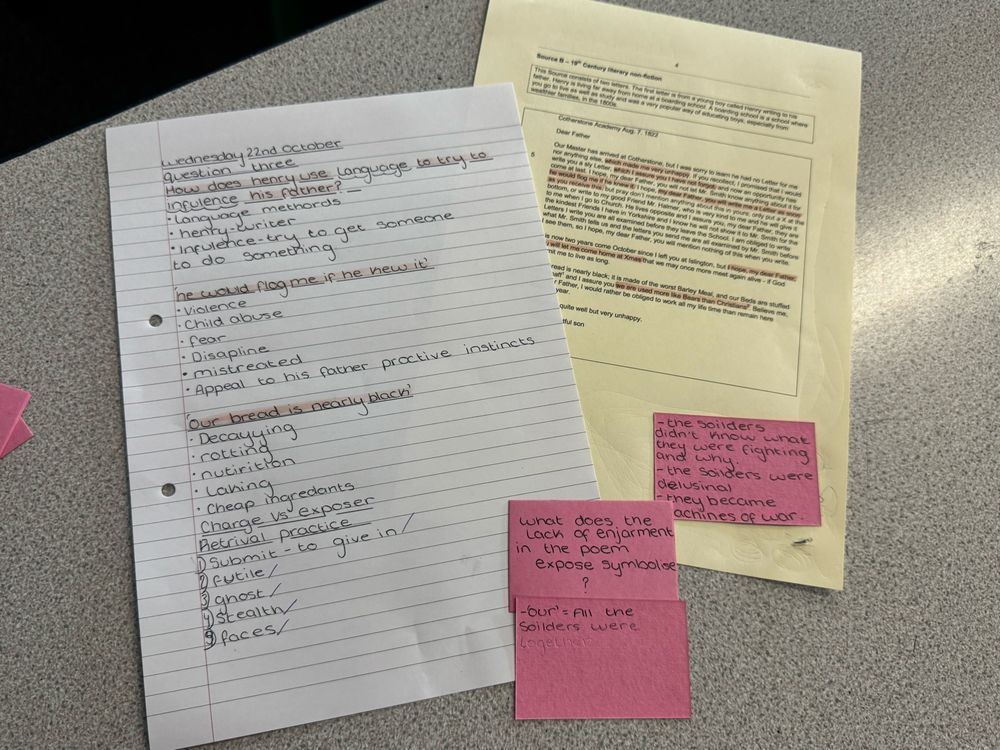 wednesday 22nd October
question three
How does henry use language to try to
infulence his father?
• language methords
• henry-writer
• Infulence-try to get someone
to do something
'he would flog me if he knew it'
• Violence
• Child abuse
• fear
• Disapline
• mistreated
• Appeal to his father proctive instincts
'Our bread is nearly black'
• Decayying
• rotting
• nutirition
• Laking
• Cheap ingredants
Charge Vs exposer
Retrival practice
1) Submit - to give in /
2) futile /
3) ghost /
4) Stealth /
5) faces /
4
Source B – 19th Century literary non-fiction
This Source consists of two letters. The first letter is from a young boy called Henry writing to his
father. Henry is living far away from home at a boarding school. A boarding school is a school where
you go to live as well as study and was a very popular way of educating boys, especially from
wealthier families, in the 1800s.
Cotherstone Academy Aug. 7. 1822
Dear Father
5
Our Master has arrived at Cotherstone, but I was sorry to learn he had no Letter for me
nor anything else, which made me very unhappy. If you recollect, I promised that I would
write you a sly Letter, which I assure you I have not forgot, and now an opportunity has
come at last. I hope, my dear Father, you will not let Mr. Smith know anything about it for
he would flog me if he knew it. I hope, my dear Father, you will write me a Letter as soon
as you receive this, but pray don't mention anything about this in yours; only put a X at the
bottom, or write to my good Friend Mr. Halmer, who is very kind to me and he will give it
to me when I go to Church. He lives opposite and I assure you, my dear Father, they are
the kindest Friends I have in Yorkshire and I know he will not show it to Mr. Smith for the
Letters I write you are all examined before they leave the School. I am obliged to write
what Mr. Smith tells us and the letters you send me are all examined by Mr. Smith before
I see them, so I hope, my dear Father, you will mention nothing of this when you write.
is now two years come October since I left you at Islington, but I hope, my dear Father,
u will let me come home at Xmas that we may once more meet again alive – if God
mit me to live as long.
read is nearly black; it is made of the worst Barley Meal, and our Beds are stuffed
aff and I assure you we are used more like Bears than Christians. Believe me,
r Father, I would rather be obliged to work all my life time than remain here
year.
quite well but very unhappy.
tful son
- the Soilders
didn't know what
they were fighting
and why.
- the Soilders were
delusinal
- they became
achines of war.
what does the
Lack of enjarment
in the poem
expose symbolise
?
-'our' = All the
Soilders were
together